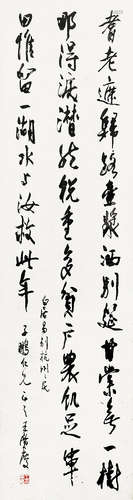 耆老遮歸路壺漿满別筵甘棠無一樹
那得淚潸然稅重多貧户農飢足旱
田惟留一湖水与汝救凶年
白居易別杭州民
子鵬仁兄正之王廣慶